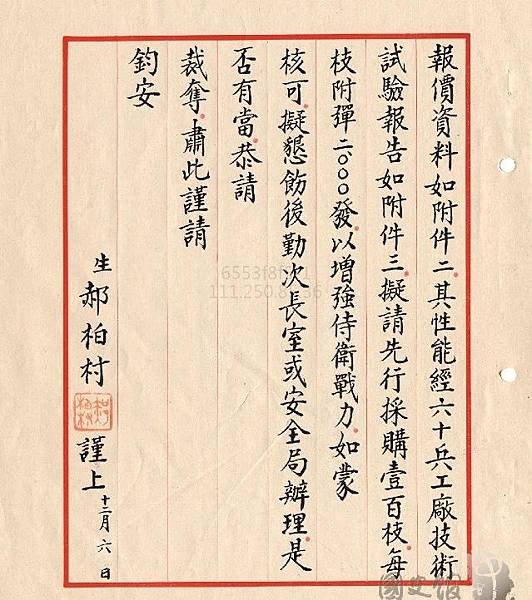 報價資料如附件二。其性能經六十兵工廠技術
試驗報告如附件三。擬請先行採購壹百枝。每
枝附彈二、〇〇〇發。以增強侍衛戰力。如蒙
核可。擬懇飭後勤次長室或安全局辦理。是
否有當。恭請
裁奪。肅此謹請
鈞安
生 郝柏村 謹上 十二月六日
郝柏村
國史館